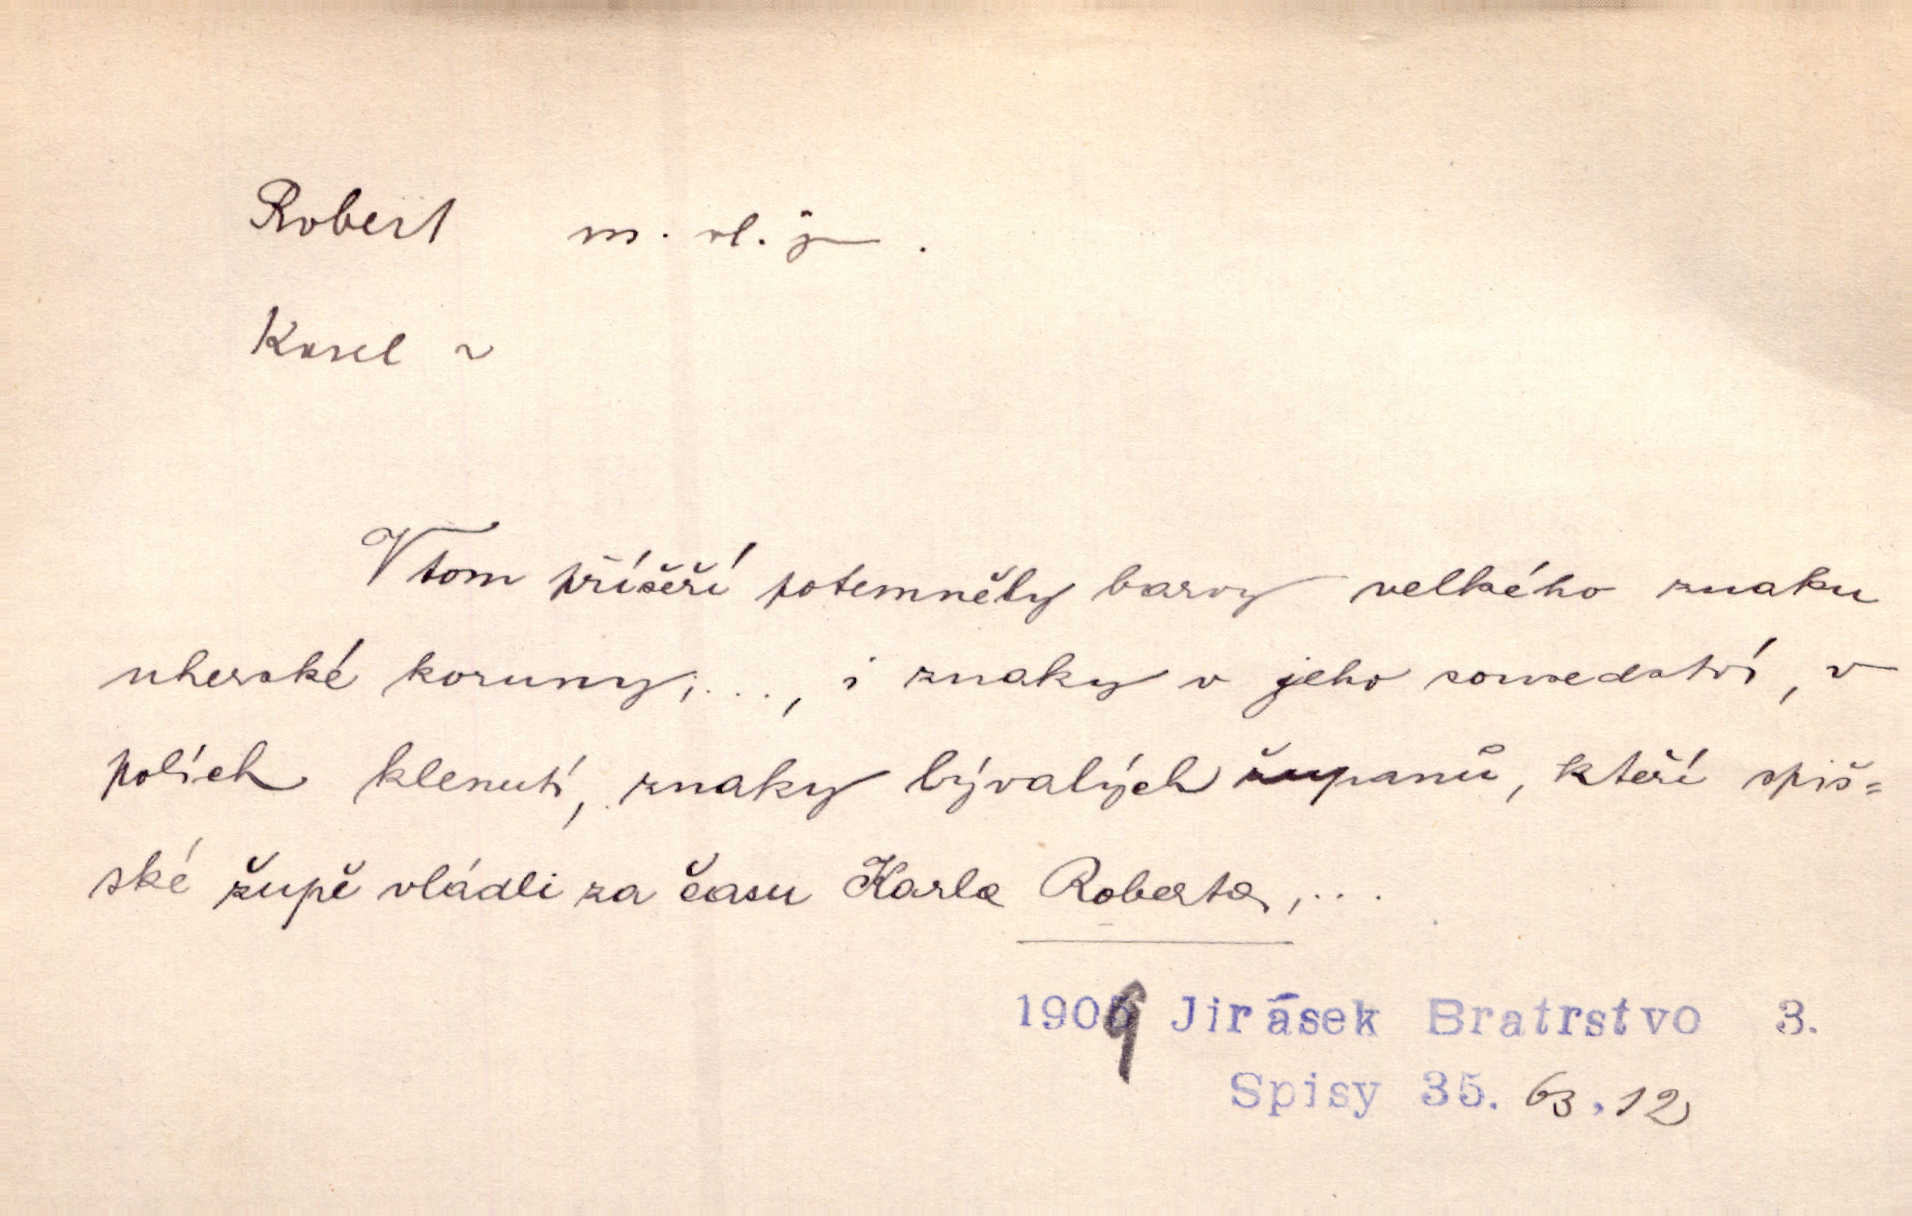 Robert m. vl. j.
Karel ~
V tom příšeří potemněly barvy velkého znaku
uherské koruny, . . . , i znaky v jeho sousedství, v
polích klenutí, znaky bývalých županů, kteří spiš=
ské župě vládli za času Karla Roberta, . . .
1909 Jirásek Bratrstvo 3.
Spisy 35. 63, 12